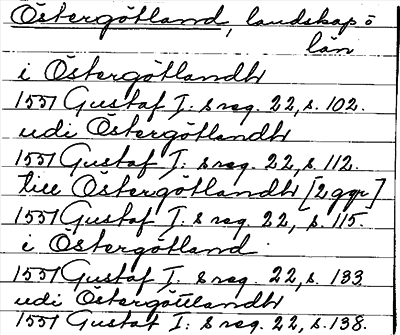 Östergötland, landskap o
län
i Östergötlandh
1551 Gustaf I:s reg. 22, s. 102.
udi Östergötlandh
1551 Gustaf I:s reg. 22, s. 112.
till Östergötlandh [2 ggr]
1551 Gustaf I:s reg. 22, s. 115.
i Östergötland
1551 Gustaf I:s reg. 22, s. 133
udi Östergötlandh
1551 Gustaf I:s reg. 22, s. 138.